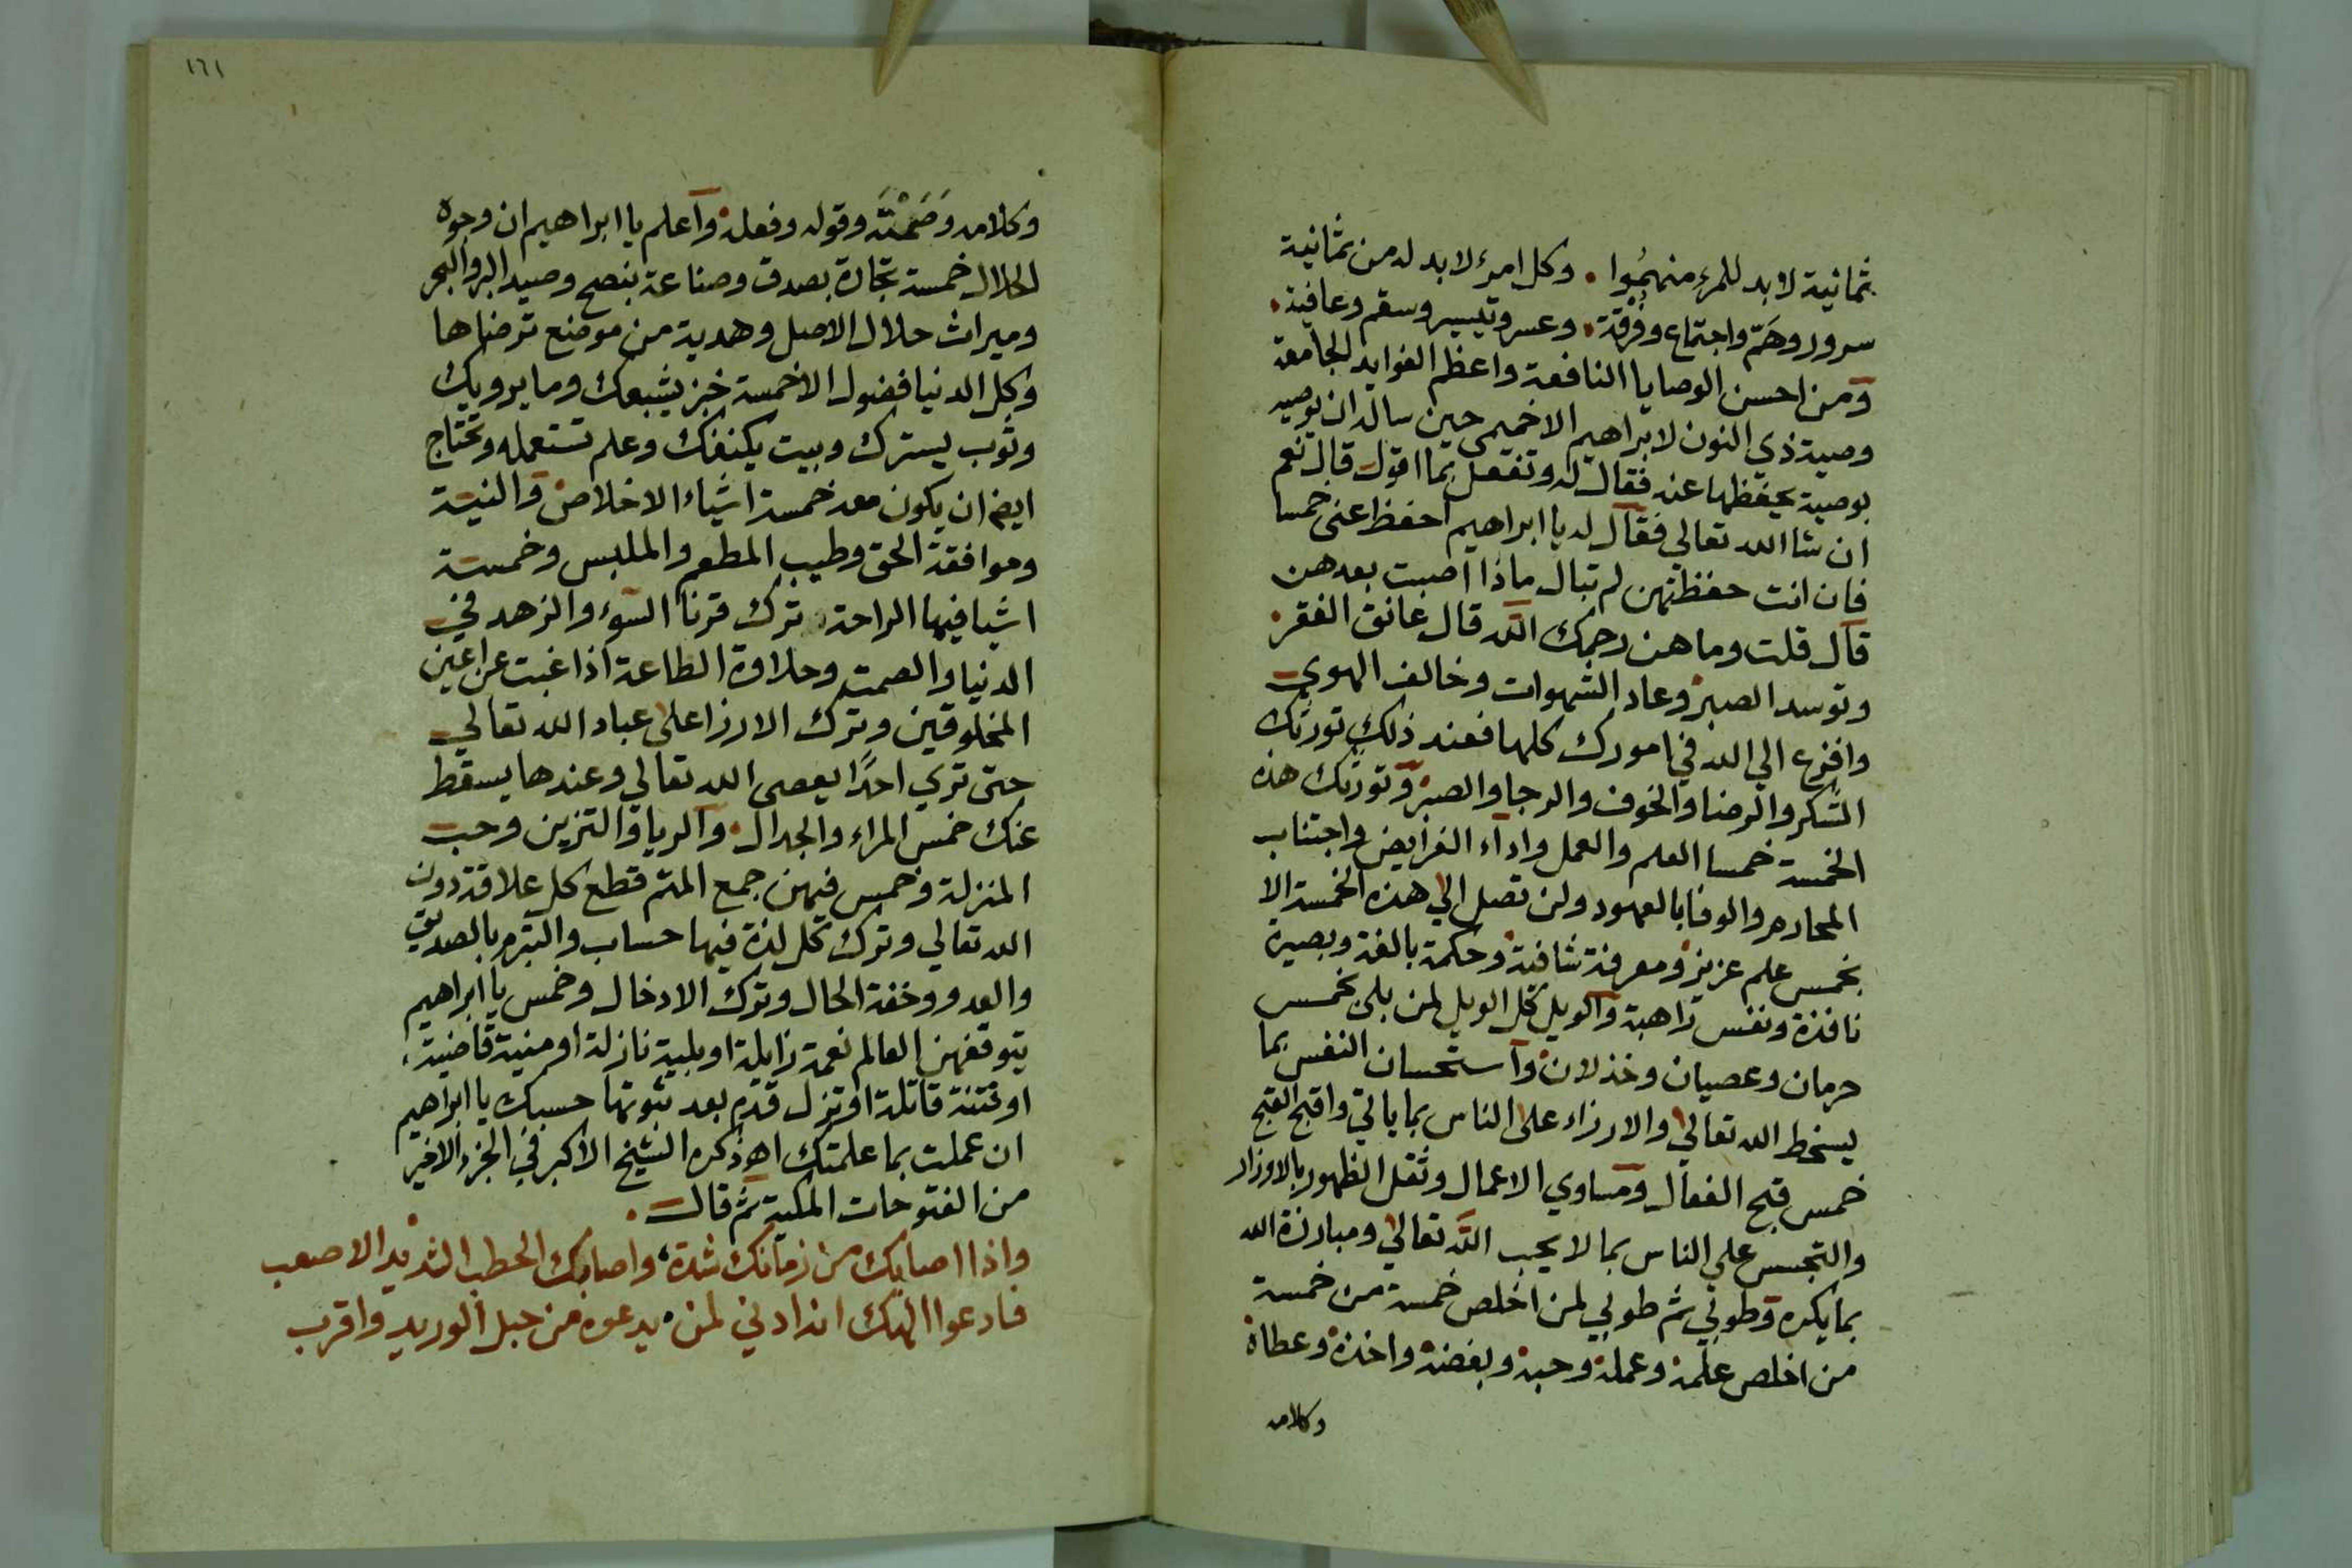 ثمانية لابد للمرء منهموا . وكل امرء لابد له من ثمانية
سرور وهَمّ واجتماع وفُرْقة . وعسر وتيسير وسقم وعافية .
ومن احسن الوصايا النافعة واعظم الفوايد الجامعة
وصية ذي النون لابراهيم الاخميمي حين ساله ان يوصيه
بوصية يحفظها عنه فقال له وتفعل بما اقول قال نعم
ان شا الله تعالي فقال له يا ابراهيم احفظ عني خمسا
فان انت حفظتهن لم تبال ماذا اصبت بعدهن
قال قلت وما هن رحمك الله قال عانق الفقر
وتوسد الصبر وعاد الشهوات وخالف الهوي
وافزع الي الله في امورك كلها فعند ذلك تورثك
الشكر والرضا والخوف والرجا والصبر وتورثك هذه
الخمسة خمسا العلم والعمل واداء الفرايض واجتناب
المحارم والوفا بالعهود ولن تصل الي هذه الخمسة الا
بخمس علم عزيز ومعرفة شافية وحكمة بالغة وبصيرة
نافذة ونفس راهبة والويل كل الويل لمن بلي بخمس
حرمان وعصيان وخذلان واستحسان النفس بما
يسخط الله تعالي والازراء علي الناس بما ياتي واقبح القبح
خمس قبح الفعال ومساوي الاعمال وثقل الظهور بالاوزار
والتجسس علي الناس بما لا يحب الله تعالي ومبارزة الله
بما يكره وطوبي ثم طوبي لمن اخلص خمسة من خمسة
من اخلص علمه وعمله وحبه وبغضه واخذه وعطاه
وكلامه
١٦١
وكلامه وصَمْتَه وقوله وفعله واعلم يا ابراهيم ان وجوه
الحلال خمسة تجارة بصدق وصناعة بنصح وصيد البر والبحر
وميراث حلال الاصل وهدية من موضع ترضاها
وكل الدنيا فضول الا خمسة خبز يشبعك وما يرويك
وثوب يسترك وبيت يكنفك وعلم تستعمله وتحتاج
ايض ان يكون معه خمسة اشياء الاخلاص والنية
وموافقة الحق وطيب المطعم والملبس وخمسة
اشيا فيها الراحة ترك قرنا السوء والزهد في
الدنيا والصمت وحلاوة الطاعة اذا غبت عن اعين
المخلوقين وترك الازرا علي عباد الله تعالي
حتى تري احدًا يعصى الله تعالي وعندها يسقط
عنك خمس المراء والجدال والريا والتزين وحب
المنزلة وخمس فيهن جمع الهم قطع كل علاقة دون
الله تعالي وترك كل لذة فيها حساب والتبرم بالصديق
والعدو وخفة الحال وترك الادخال وخمس يا ابراهيم
يتوقعهن العالم نعمة زايلة او بلية نازلة او منية قاضية
او فتنة قاتلة او تزل قدم بعد ثبوتها حسبك يا ابراهيم
ان عملت بما علمتك اهـ ذكره الشيخ الاكبر في الجزء الاخير
من الفتوحات المكية ثم قال .
واذا اصابك من زمانك شدة واصابك الخطب الشديد الاصعب
فادعوا الهك انه ادني لمن يدعوه من حبل الوريد واقرب